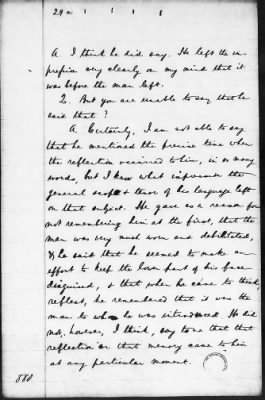 29 a
A. I think he did say. He left the im-
pression very clearly on my mind that it
was before the man left.
Q. But you are unable to say that he
said that?
A. Certainly, I am not able to say
that he mentioned the precise time when
the reflection occurred to him, in so many
words, but I know what impression the
general scope & tenor of his language left
on that subject. He gave as a reason for
not remembering him at the first, that the
man was very much worn and debilitated,
& he said that he seemed to make an
effort to keep the lower part of his face
disguised, & that when he came to think,
reflect, he remembered that it was the
man to whom he was introduced. He did
not, however, I think, say to me that that
reflection or that memory came to him
at any particular moment.
880